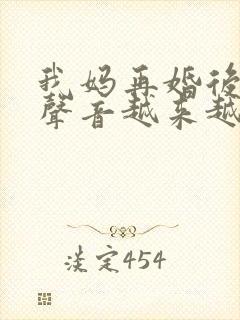 我妈再婚後
聲音越来越
淡定454